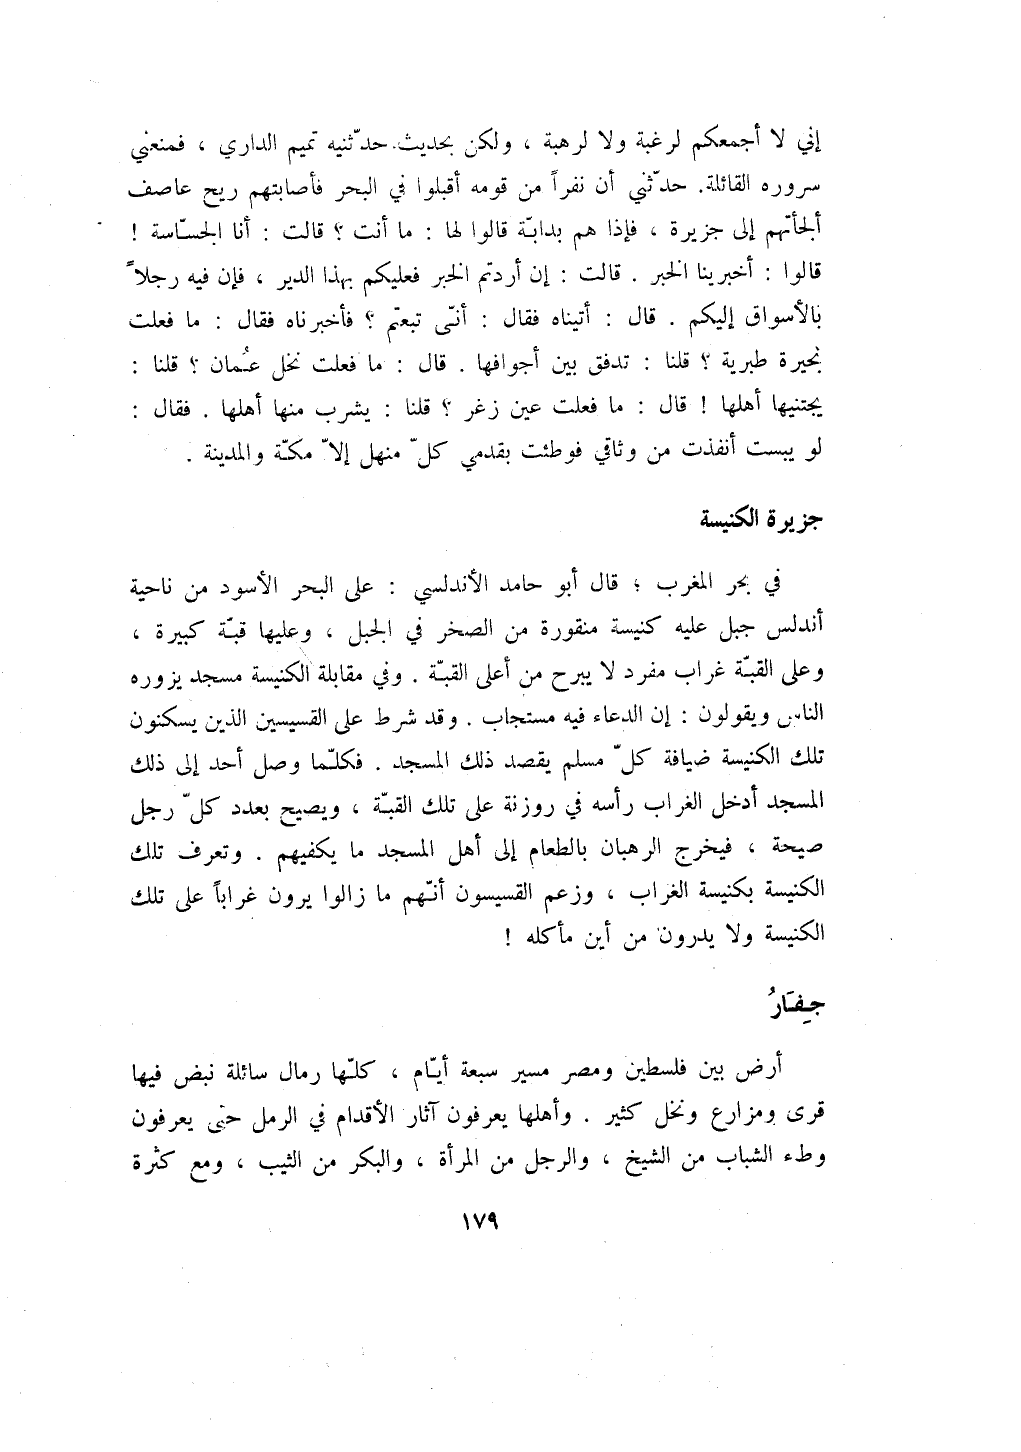 إني لا أجمعكم لرغبة ولا لرهبة ، ولكن بحديث حدّثنيه تميم الداري ، فمنعني
سروره القائلة. حدّثني أن نفراً من قومه أقبلوا في البحر فأصابتهم ريح عاصف
ألجأتهم إلى جزيرة ، فإذا هم بدابّة قالوا لها : ما أنت ؟ قالت : أنا الجسّاسة !
قالوا : أخبرينا الخبر . قالت : إن أردتم الخبر فعليكم بهذا الدير ، فإن فيه رجلاً
بالأسواق إليكم . قال : أتيناه فقال : أنّى تبعتم ؟ فأخبرناه فقال : ما فعلت
بحيرة طبرية ؟ قلنا : تدفق بين أجوافها . قال : ما فعلت نخل عُمان ؟ قلنا :
يجتنيها أهلها ! قال : ما فعلت عين زغر ؟ قلنا : يشرب منها أهلها . فقال :
لو يبست أنفذت من وثاقي فوطئت بقدمي كلّ منهل إلاّ مكّة والمدينة .
جزيرة الكنيسة
في بحر المغرب ؛ قال أبو حامد الأندلسي : على البحر الأسود من ناحية
أندلس جبل عليه كنيسة منقورة من الصخر في الجبل ، وعليها قبّة كبيرة ،
وعلى القبّة غراب مفرد لا يبرح من أعلى القبّة . وفي مقابلة الكنيسة مسجد يزوره
الناس ويقولون : إن الدعاء فيه مستجاب . وقد شرط على القسيسين الذين يسكنون
تلك الكنيسة ضيافة كلّ مسلم يقصد ذلك المسجد . فكلّما وصل أحد إلى ذلك
المسجد أدخل الغراب رأسه في روزنة على تلك القبّة ، ويصيح بعدد كلّ رجل
صيحة ، فيخرج الرهبان بالطعام إلى أهل المسجد ما يكفيهم . وتعرف تلك
الكنيسة بكنيسة الغراب ، وزعم القسيسون أنّهم ما زالوا يرون غراباً على تلك
الكنيسة ولا يدرون من أين مأكله !
جِفَارُ
أرض بين فلسطين ومصر مسير سبعة أيّام ، كلّها رمال سائلة نبض فيها
قرى ومزارع ونخل كثير . وأهلها يعرفون آثار الأقدام في الرمل حتى يعرفون
وطء الشباب من الشيخ ، والرجل من المرأة ، والبكر من الثيب ، ومع كثرة
١٧٩